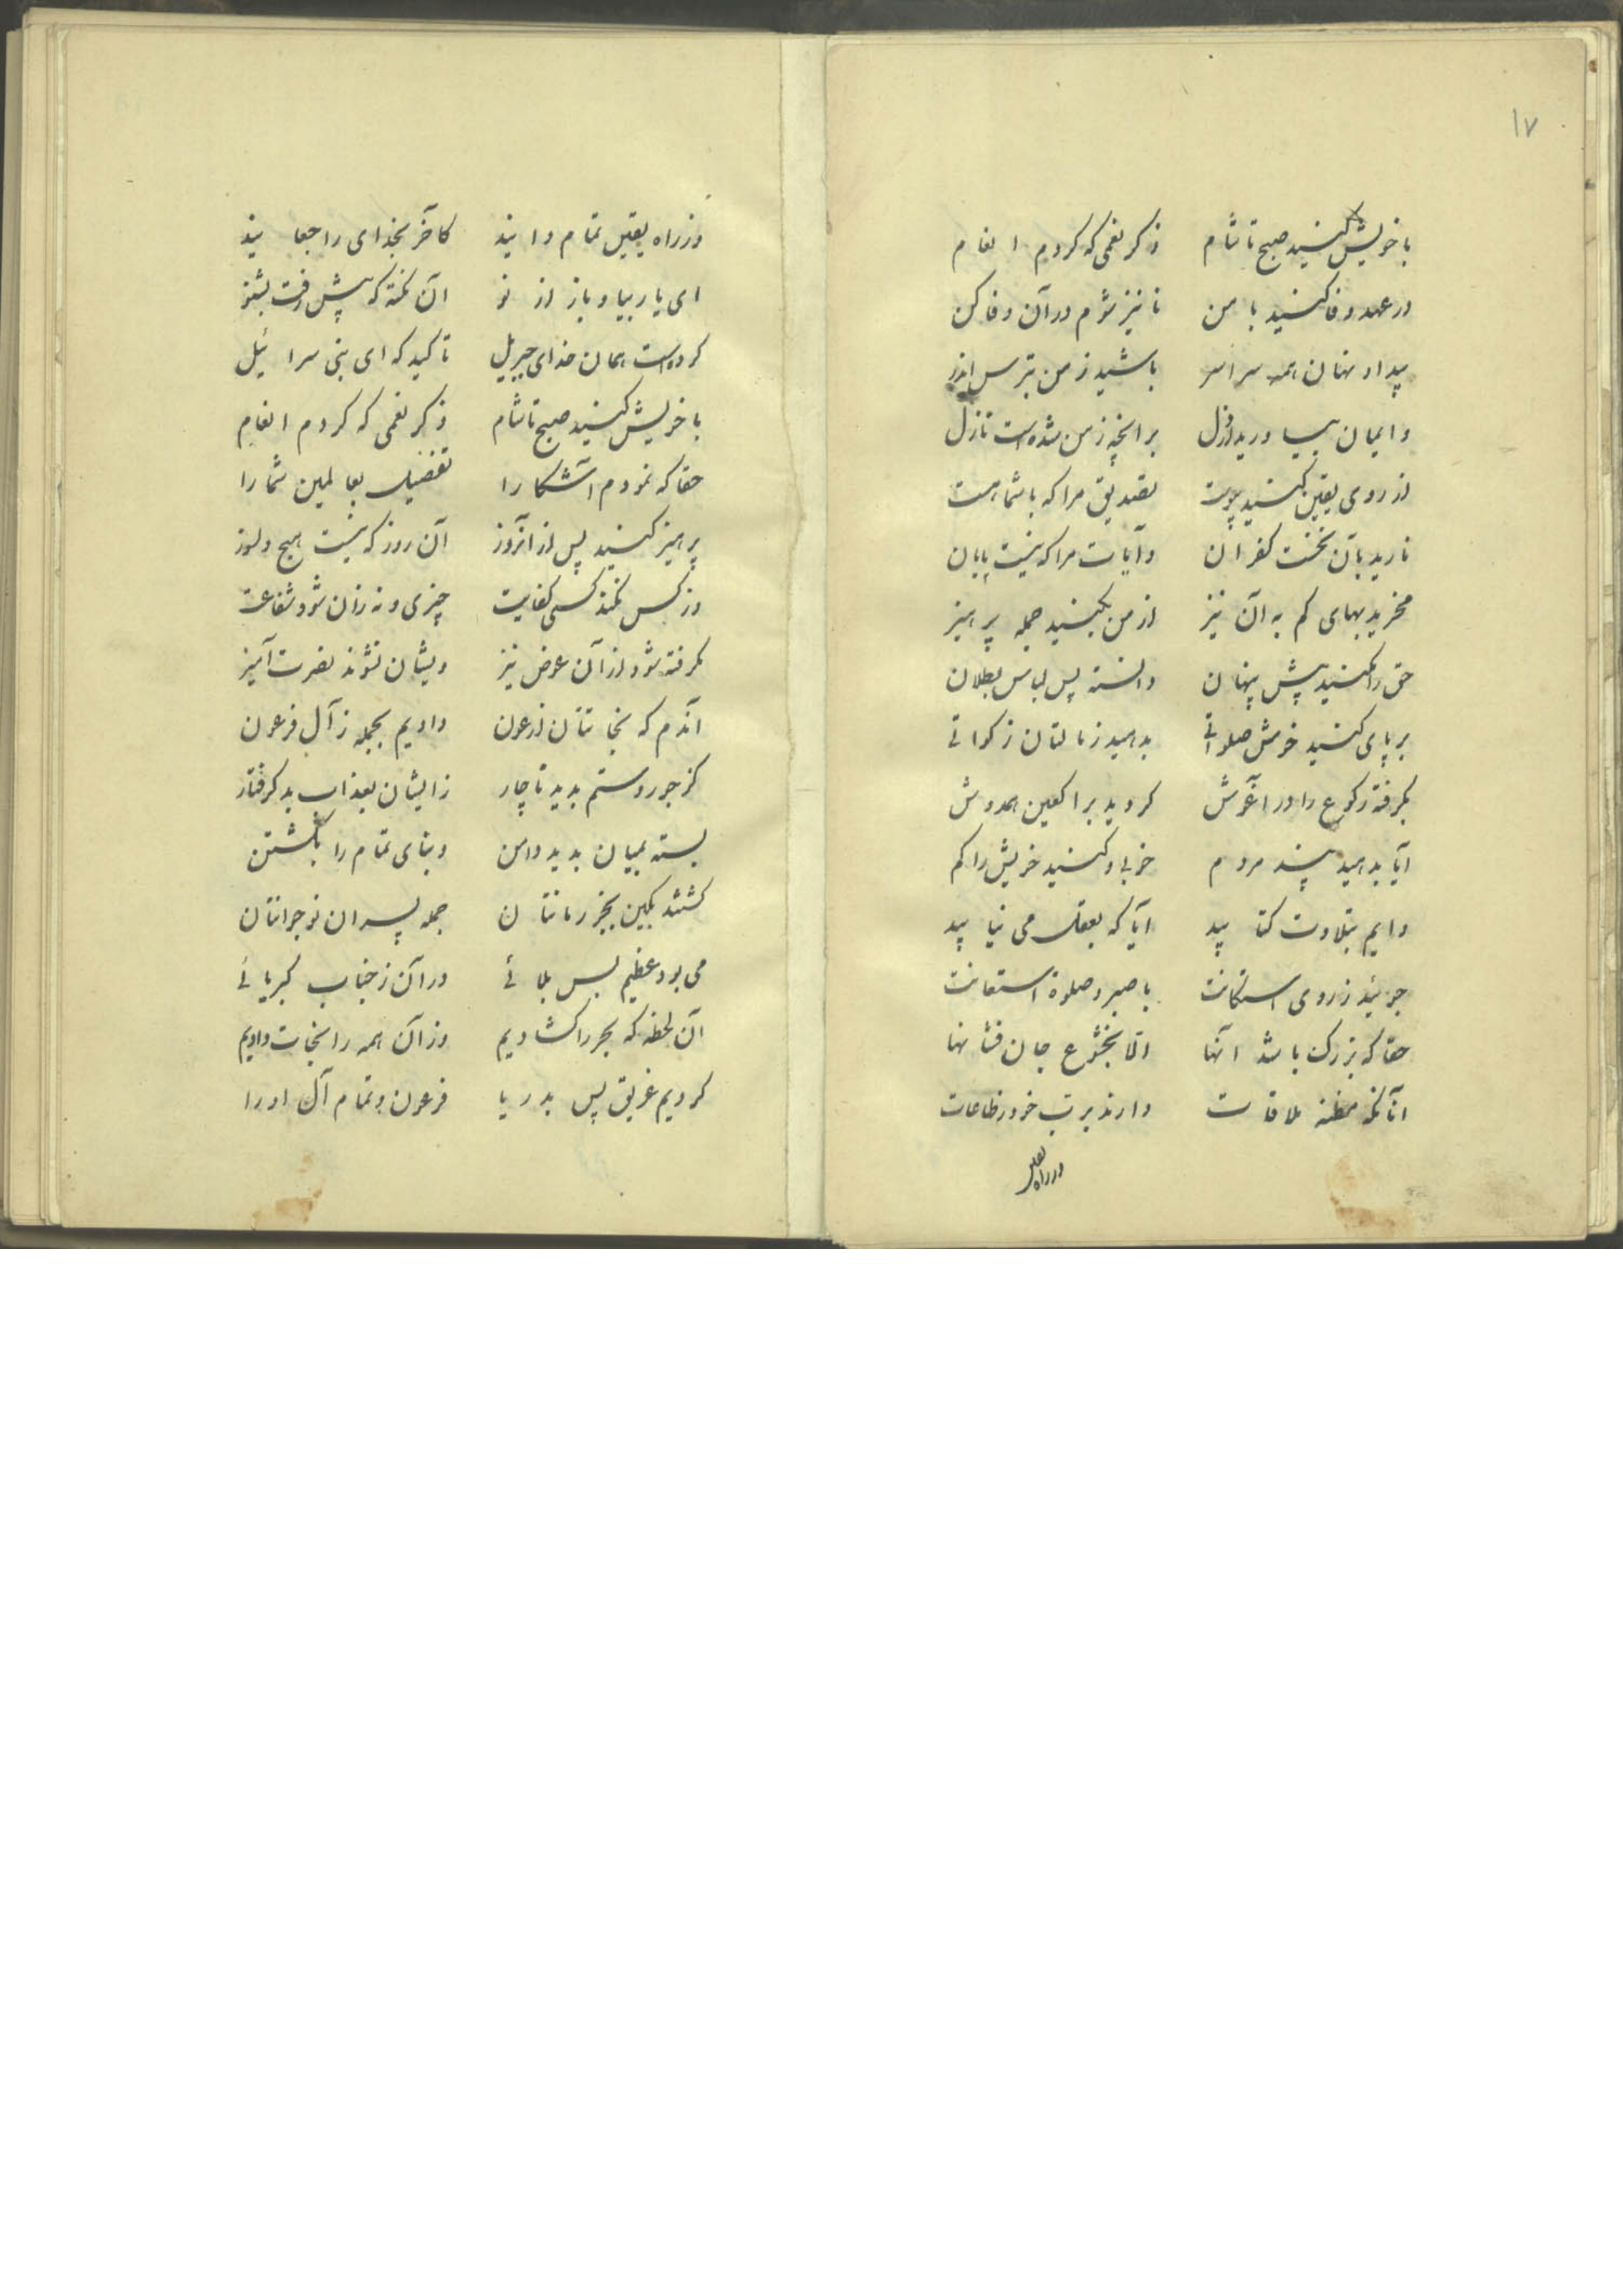 ۱۷
با خویش کنید صبح تا شام ذکر نعمی که کردم انعام
در عهد وفا کنید با من تا نیز شوم در آن وفا کن
پیدا و نهان همه سراسر باشید ز من بترس اندر
و ایمان بیاورید از دل بر آنچه ز من شده است نازل
از روی یقین کنید پیوست تصدیق مرا که با شما هست
نارید بآن نخست کفران و آیات مرا که نیست پایان
مخرید بهای کم به آن نیز از من بکنید جمله پرهیز
حق را مکنید پیش پنهان دانسته پس لباس بطلان
برپای کنید خوش صلواتی بدهید ز مالتان زکواتی
بگرفته رکوع را در آغوش گردید براکعین همدوش
آیا بدهید پند مردم خوبی و کنید خویش را گم
دایم بتلاوت کتابید آیا که بعقل می نیابید
جوئید ز روی استکانت با صبر و صلوة استعانت
حقا که بزرگ باشد آنها الا بخشوع جان فشانها
آنانکه مظنه ملاقات دارند برب خود ز طاعات
وز راه یقین
وز راه یقین تمام دانید کآخر بخدای راجعانید
ای یار بیا و باز از نو آن نکته که پیش رفت بشنو
کرده است همان خدای جبریل تاکید که ای بنی سرائیل
با خویش کنید صبح تا شام ذکر نعمی که کردم انعام
حقا که نمودم آشکارا تفضیل بعالمین شما را
پرهیز کنید پس از آنروز آن روز که نیست هیچ دلسوز
وز کس نکند کسی کفایت چیزی و نه زان شود شفاعت
گرفته شود از آن عوض نیز و یشان نشوند نصرت آمیز
آندم که نجاتتان ز عون دادیم بجمله ز آل فرعون
کز جور و ستم بدید ناچار زایشان بعذاب بد گرفتار
بسته بمیان بدید دامن و بنای تمام را بکشتن
کشتند بکین بخنجر رمانتان جمله پسران نوجوانتان
می بود عظیم بس بلائی در آن ز جناب کبریائی
آن لحظه که بحر را گشادیم وز آن همه را نجات دادیم
کردیم غریق پس بدریا فرعون و تمام آل او را